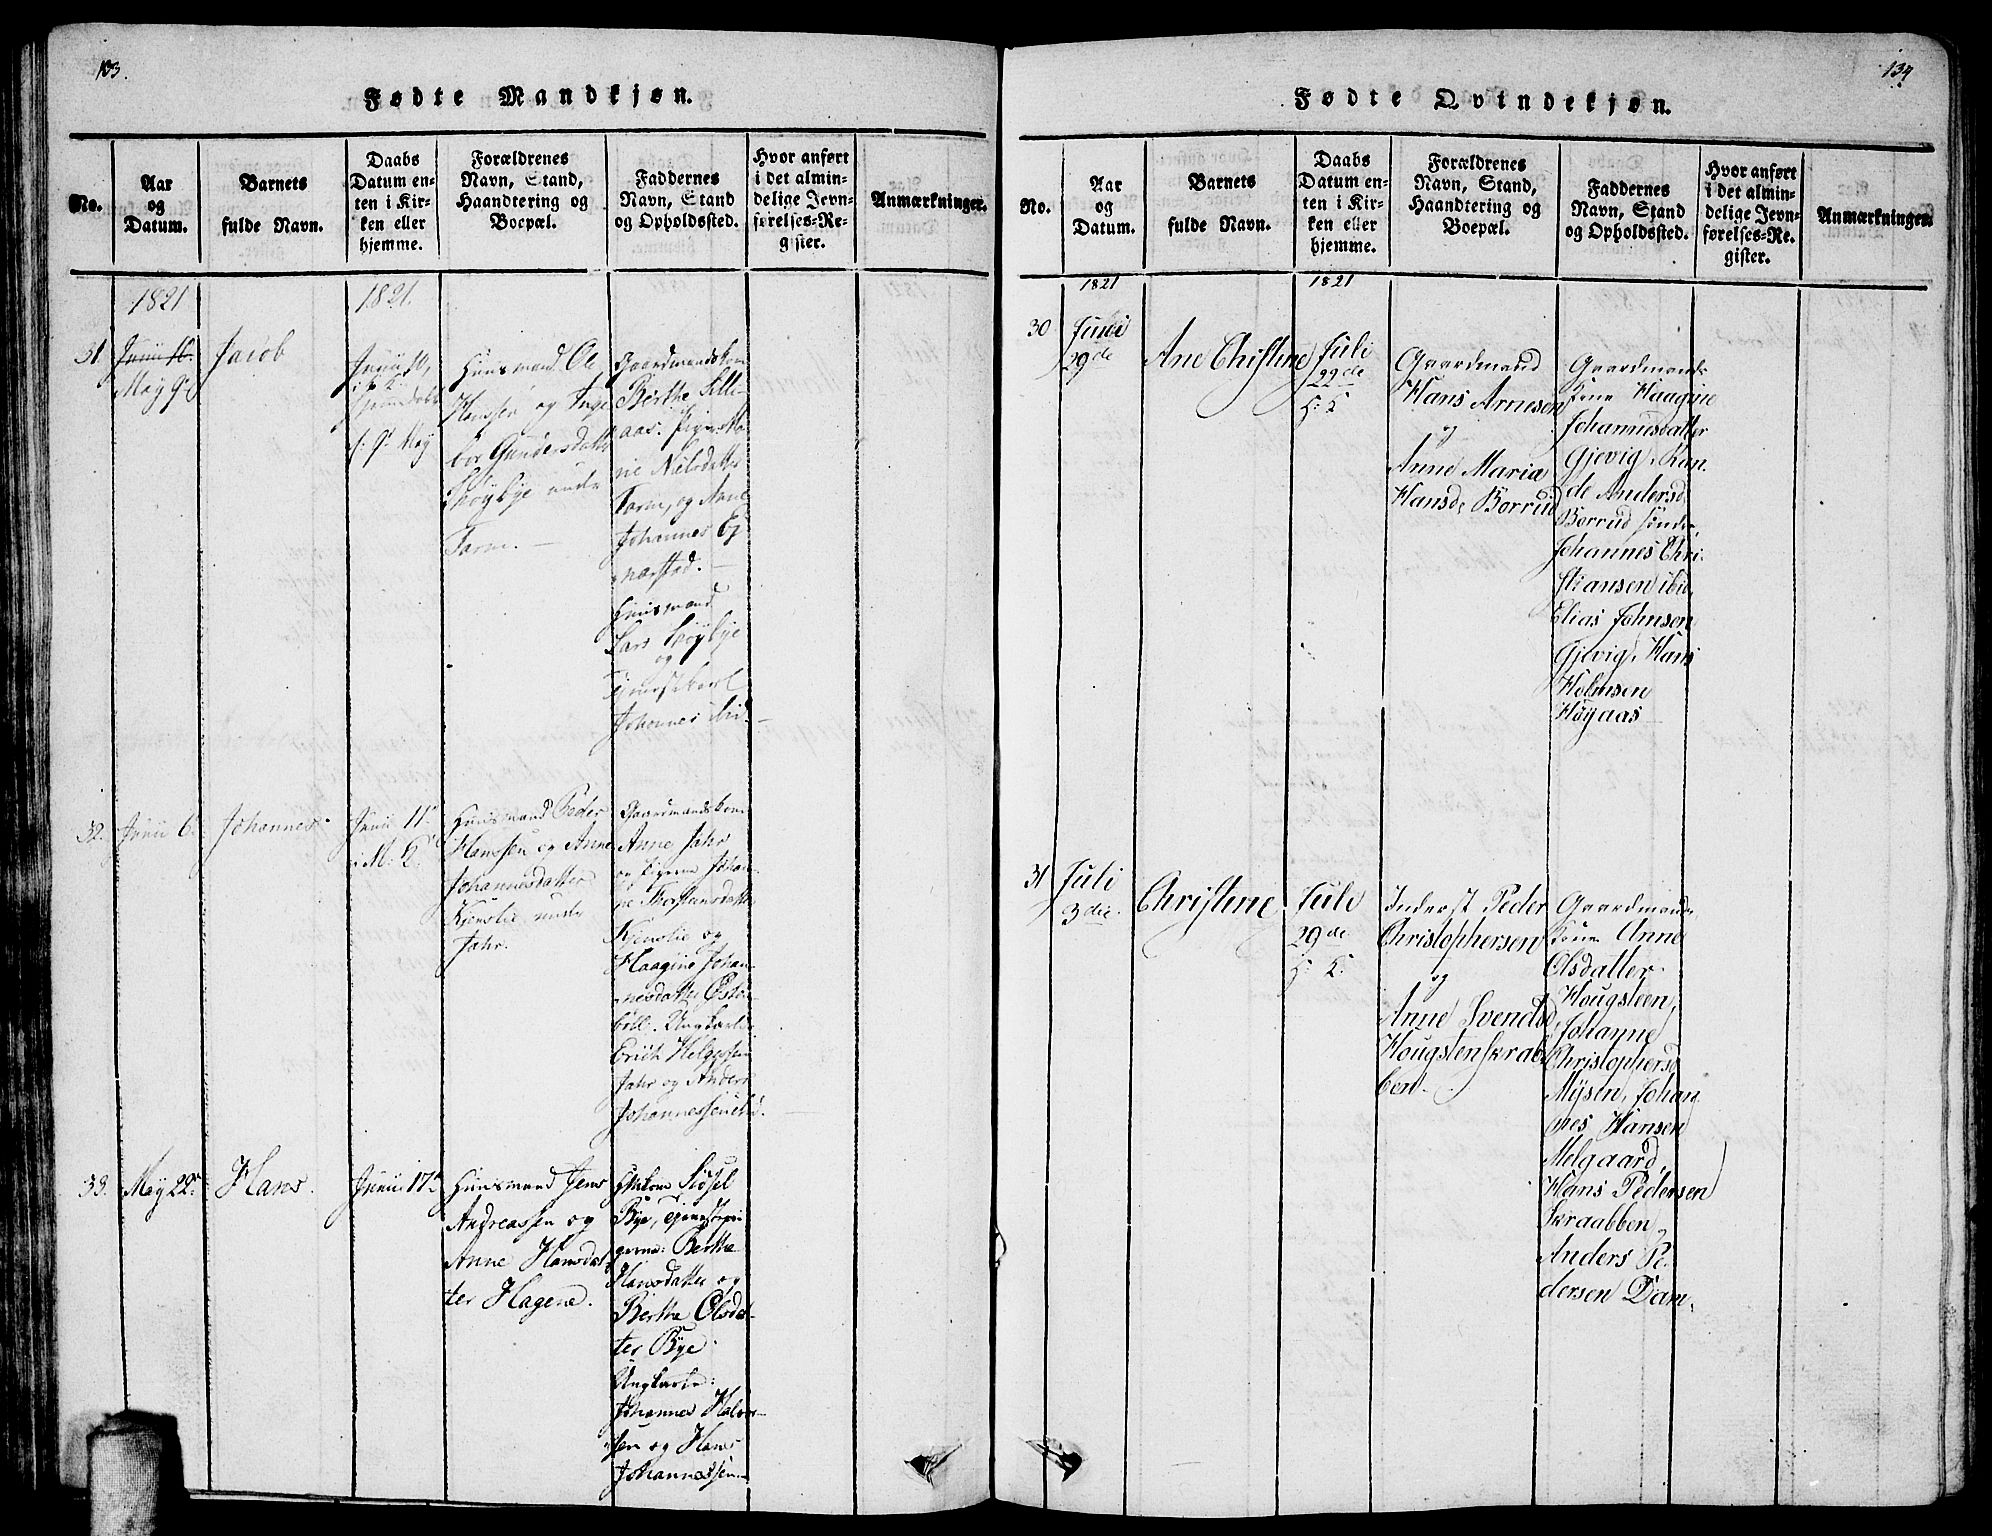 103.
Fødte Mandkjøn.
No.
Aar
og
Datum.
Barnets
fulde Navn.
Daabs
Datum en-
ten i Kir-
ken eller
hjemme.
Forældrenes
Navn, Stand,
Haandtering og
Boepæl.
Faddernes
Navn, Stand
og Opholdssted.
Hvor anført
i det almin-
delige Jevn-
førelses-Re-
gister.
Anmærkninger.
1821
1821.
31
Junii 10.
May 9de
Jacob
Junii 10,
f. 9de May
Huusmand Ole
Hanssen og Inge
bor Gundersdatter
Høybye under
Gaardmandskone
Berthe Lille
aas. Piger: Ma
rie Nilsdatter
og Anne
Johannes
Huusmand
Lars Høybye
og
Johannes ibid.
32.
Junii 6
Johannes
Junii 11te
i M. K.
Huusmand Peder
Hanssen og Anne
Johannesdatter
Kjenslie under
Jahr.
Gaardmandskone
Anne Jahr
og Pigerne Johan
ne Thorstensdatter
Kjenslie og
Haagine Johan-
nesdatter
Ungkarle
Erich Helgessen
Jahr og Anders
Johannessen ibid.
33.
May 22de
Hans.
Junii 17de
Huusmand Jens
Andreassen og
Anne Hansdat-
ter Hagene.
Bye,
gerne: Berthe
Hansdatter og
Berthe Olsdat-
ter Bye
Ungkarle:
Johannes Halvor-
sen og Hans
Johannessen
134
Fødte Qvindekjøn.
No.
Aar
og
Datum.
Barnets
fulde Navn.
Daabs
Datum en-
ten i Kir-
ken eller
hjemme.
Forældrenes
Navn, Stand,
Haandtering og
Boepæl.
Faddernes
Navn, Stand
og Opholdssted.
Hvor anført
i det almin-
delige Jevn-
førelses-Re-
gister.
Anmærkninger.
1821
1821
30
Juni
29de
Ane Christine
Juli
22de
H: K
Gaardmand
Hans Arnesen
og
Anne Maria
Hansd. Borrud
Gaardmands
kone Haagine
Johannesdatter
Gjøvig, Ran
de Andersd.
Borrud søndre
Johannes Chri-
stiansen ibid.
Elias Johnsen
Gjevig, Hans
Holmsen
Høyaas
31
Juli
3die.
Christine
Juli
29de
H: K:
Inderst Peder
Christophersen
og
Anne Svendsd.
Hougstenskrab
ben.
Gaardmands
kone Anne
Olsdatter
Hougsteen,
Johanne
Christophersd
Mysen, Johan
nes Hansen
Melgaard,
Hans Pedersen
Skraabben
Anders Pe-
dersen Dam.